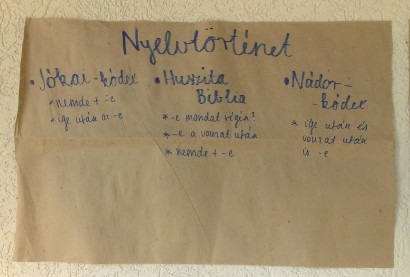 Nyelvtörténet
• Jókai-kódex
* nemde + -e
* ige után az -e
• Huszita
Biblia
* -e mondat végén?
* -e a vonzat után
* nemde + -e
• Nádor-
-kódex
* ige után és
vonzat után
is -e